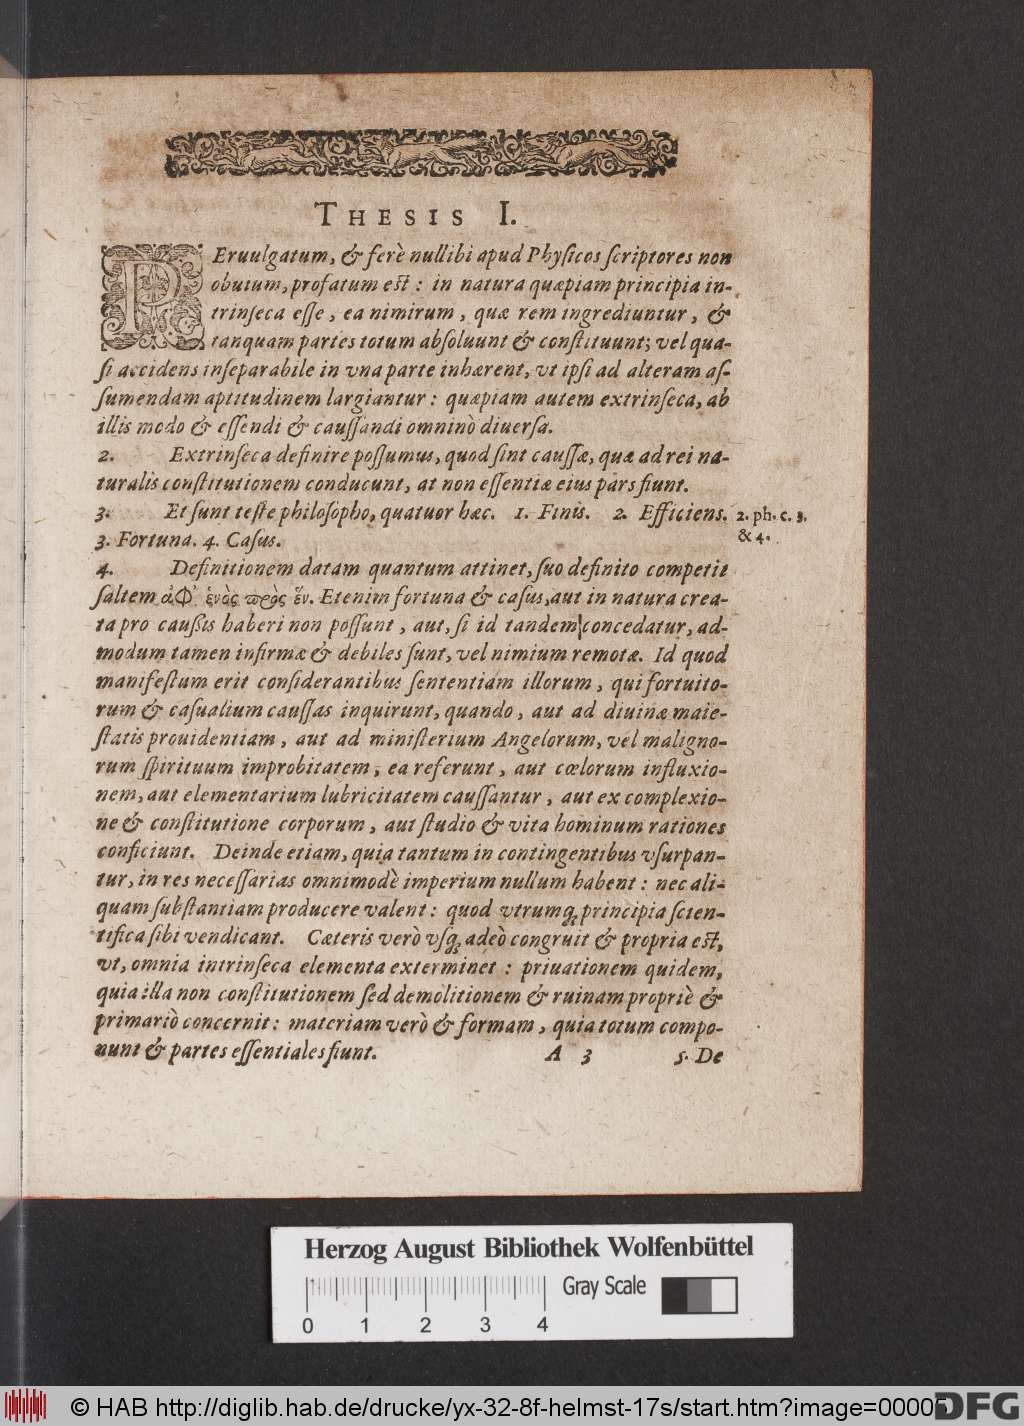 THESIS I.
PEruulgatum, & ferè nullibi apud Physicos scriptores non
obuium, profatum est : in natura quæpiam principia in-
trinseca esse, ea nimirum, quæ rem ingrediuntur, &
tanquam partes totum absoluunt & constituunt; vel qua-
si accidens inseparabile in vna parte inhærent, vt ipsi ad alteram as-
sumendam aptitudinem largiantur : quæpiam autem extrinseca, ab
illis modo & essendi & caussandi omninò diuersa.
2. Extrinseca definire possumus, quod sint caussæ, quæ ad rei na-
turalis constitutionem conducunt, at non essentiæ eius pars fiunt.
3. Et sunt teste philosopho, quatuor hæc. 1. Finis. 2. Efficiens. 2. ph. c. 3.
3. Fortuna. 4. Casus. & 4.
4. Definitionem datam quantum attinet, suo definito competit
saltem ἀφ' ἑνὸς πρὸς ἕν. Etenim fortuna & casus, aut in natura crea-
ta pro caussis haberi non possunt, aut, si id tandem concedatur, ad-
modum tamen infirmæ & debiles sunt, vel nimium remotæ. Id quod
manifestum erit considerantibus sententiam illorum, qui fortuito-
rum & casualium caussas inquirunt, quando, aut ad diuinæ maie-
statis prouidentiam, aut ad ministerium Angelorum, vel maligno-
rum spirituum improbitatem, ea referunt, aut cœlorum influxio-
nem, aut elementarium lubricitatem caussantur, aut ex complexio-
ne & constitutione corporum, aut studio & vita hominum rationes
conficiunt. Deinde etiam, quia tantum in contingentibus vsurpan-
tur, in res necessarias omnimodè imperium nullum habent : nec ali-
quam substantiam producere valent : quod vtrumq; principia scien-
tifica sibi vendicant. Cæteris verò vsq; adeò congruit & propria est,
vt, omnia intrinseca elementa exterminet : priuationem quidem,
quia illa non constitutionem sed demolitionem & ruinam propriè &
primariò concernit : materiam verò & formam, quia totum compo-
nunt & partes essentiales fiunt. A 3 5. De
Herzog August Bibliothek Wolfenbüttel
Gray Scale
0 1 2 3 4
© HAB http://diglib.hab.de/drucke/yx-32-8f-helmst-17s/start.htm?image=00005
DFG